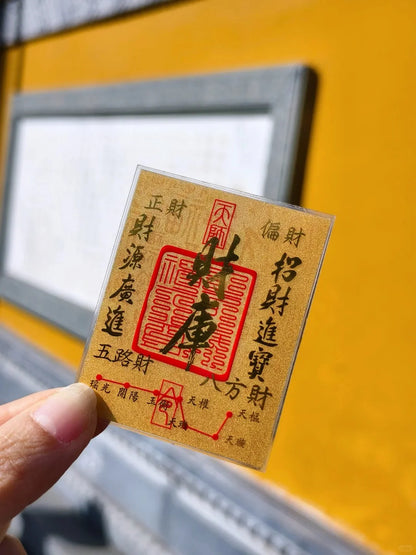 正財
偏財
財源廣進
財庫
招財進寶
五路財
八方財
開陽
玉衡
天權
天樞